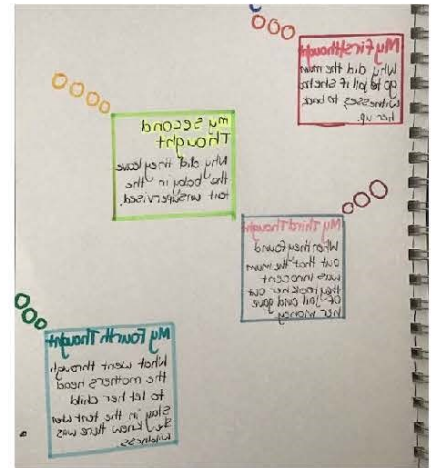 My First thought
Why did the mum
go to jail if she had
witnesses to back
her up.
my second
Thought
Why did they leave
the baby in the
tent unsupervised.
My Third Thought
When they found
out that the mum
was innocent
they took her out
of jail and gave
her money
My Fourth Thought
What went through
the mothers head
to let her child
stay in the tent when
she knew there was
wildness